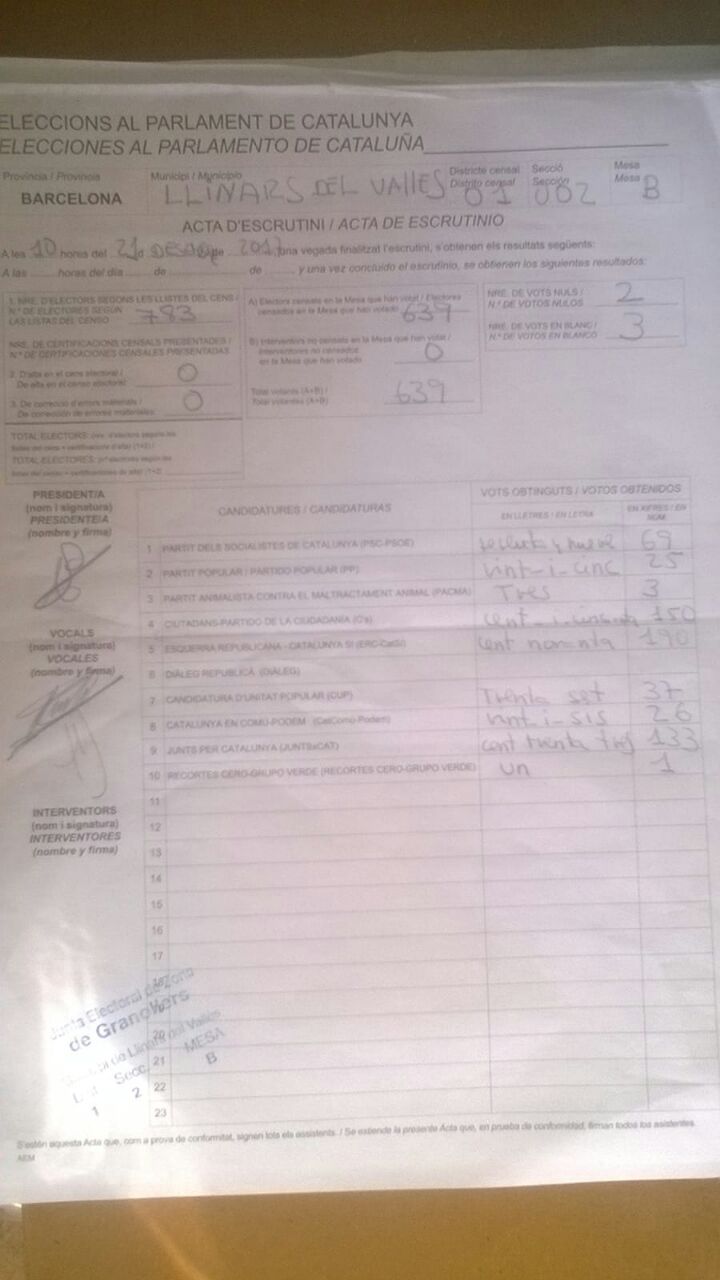 ELECCIONS AL PARLAMENT DE CATALUNYA
ELECCIONES AL PARLAMENTO DE CATALUÑA
Provincia / Provincia
BARCELONA
Municipi / Municipio
LLINARS DEL VALLES
Districte censal
Distrito censal
01
Secció
Sección
002
Mesa
Mesa
B
ACTA D'ESCRUTINI / ACTA DE ESCRUTINIO
A les 10 hores del 21 de 2017, una vegada finalitzat l'escrutini, s'obtenen els resultats següents:
A las horas del día de de y una vez concluido el escrutinio, se obtienen los siguientes resultados:
1. NRE. D'ELECTORS SEGONS LES LLISTES DEL CENS /
N.º DE ELECTORES SEGÚN
LAS LISTAS DEL CENSO
783
NRE. DE CERTIFICACIONS CENSALS PRESENTADES /
N.º DE CERTIFICACIONES CENSALES PRESENTADAS
2. D'alta en el cens electoral /
De alta en el censo electoral
0
3. De correcció d'errors materials /
De corrección de errores materiales
0
A) Electors censats en la Mesa que han votat / Electores
censados en la Mesa que han votado
639
B) Interventors no censats en la Mesa que han votat /
Interventores no censados
en la Mesa que han votado
0
Total votants (A+B) /
Total votantes (A+B)
639
NRE. DE VOTS NULS /
N.º DE VOTOS NULOS
2
NRE. DE VOTS EN BLANC /
N.º DE VOTOS EN BLANCO
3
PRESIDENT/A
(nom i signatura)
PRESIDENTE/A
(nombre y firma)
VOCALS
(nom i signatura)
VOCALES
(nombre y firma)
INTERVENTORS
(nom i signatura)
INTERVENTORES
(nombre y firma)
CANDIDATURES / CANDIDATURAS
VOTS OBTINGUTS / VOTOS OBTENIDOS
EN LLETRES / EN LETRA
EN XIFRES / EN NÚM.
1 PARTIT DELS SOCIALISTES DE CATALUNYA (PSC-PSOE) 69
2 PARTIT POPULAR / PARTIDO POPULAR (PP) vint-i-cinc 25
3 PARTIT ANIMALISTA CONTRA EL MALTRACTAMENT ANIMAL (PACMA) Tres 3
4 CIUTADANS-PARTIDO DE LA CIUDADANÍA (C's) 150
5 ESQUERRA REPUBLICANA - CATALUNYA SÍ (ERC-CatSí) cent noranta 190
6 DIÀLEG REPUBLICÀ (DIÀLEG)
7 CANDIDATURA D'UNITAT POPULAR (CUP) Trenta set 37
8 CATALUNYA EN COMÚ-PODEM (CatComú-Podem) vint-i-sis 26
9 JUNTS PER CATALUNYA (JUNTSxCAT) cent trenta tres 133
10 RECORTES CERO-GRUPO VERDE (RECORTES CERO-GRUPO VERDE) un 1
11
12
13
14
15
16
17
20
21
22
23
Junta Electoral de Zona
de Granollers
de Llinars del Vallès
Secc. MESA
1 2 B
S'estén aquesta Acta que, com a prova de conformitat, signen tots els assistents. / Se extiende la presente Acta que, en prueba de conformidad, firman todos los asistentes.
AEM